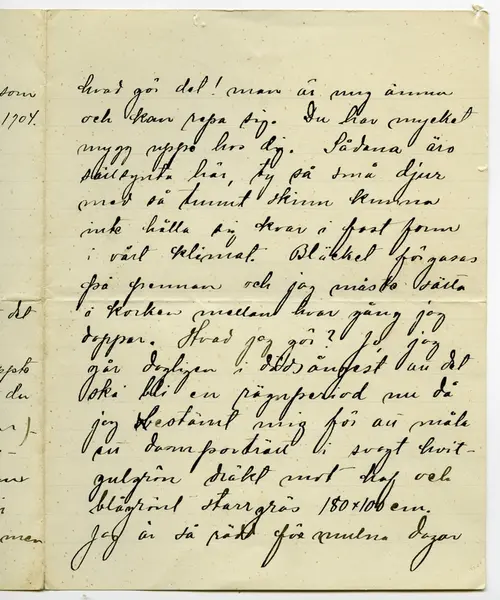 som
1704.
det
du
men
hvad gör det! man är ung ännu
och kan repa sig. Du har mycket
mygg uppe hos dig. Sådana äro
sällsynta här, ty så små djur
med så tunnt skinn kunna
inte hålla sig kvar i fast form
i vårt klimat. Bläcket förgasas
på pennan och jag måste sätta
i korken mellan hvar gång jag
doppar. Hvad jag gör? Jo, jag
går dagligen i dödsångest att det
ska bli en regnperiod nu då
jag bestämt mig för att måla
ett damporträtt i svagt hvit-
gulgrön dräkt mot haf och
blågrönt starrgräs 180x100 cm.
Jag är så rädd för mulna dagar